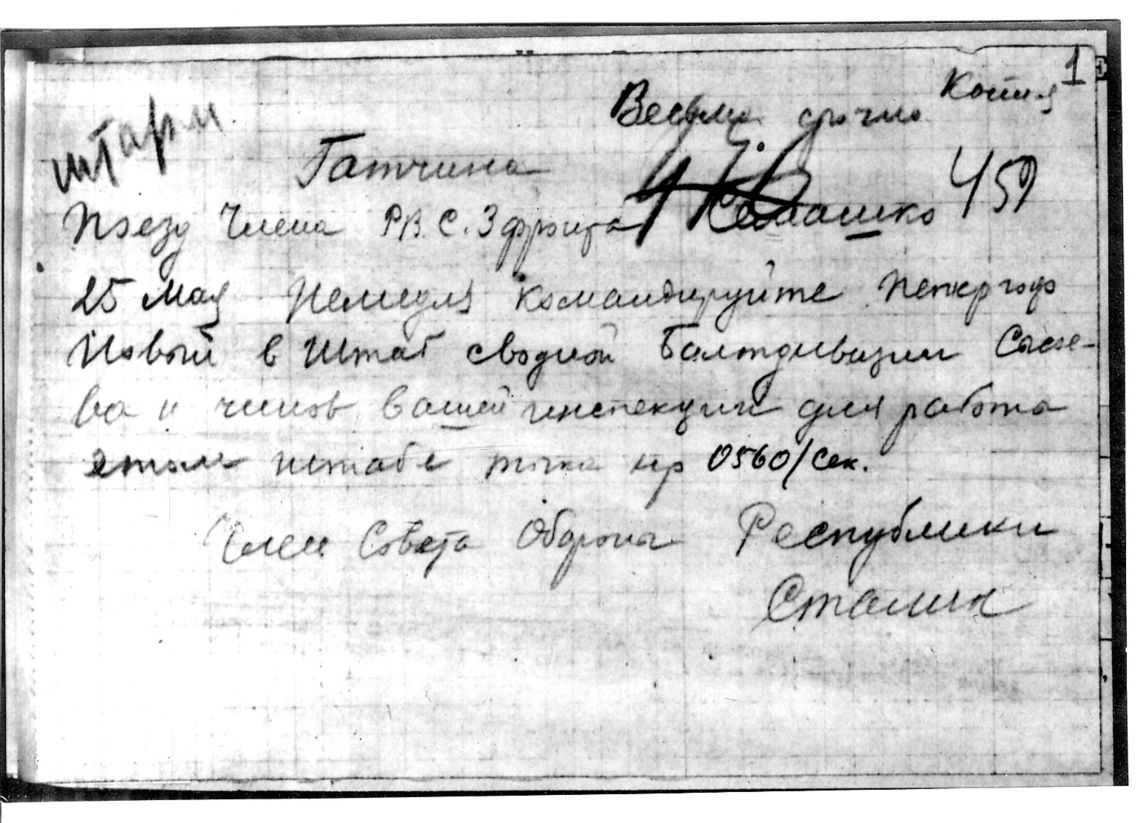 1
Копия
Весьма срочно
штарм
Гатчина
459
Поезд Члена Р.В.С. Зфронта Семашко
25 мая Немедля командируйте Петергоф
Новый в Штаб сводной Балтдивизии Сысое-
ва и чинов вашей инспекции для работы
этом штабе точка нр 0560/сек.
Член Совета Обороны Республики
Сталин